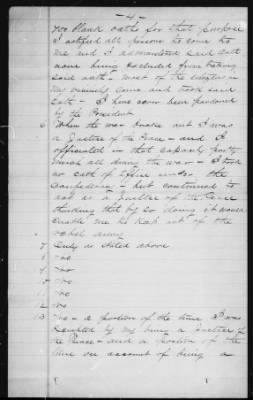 -4-
700 blank oaths for that purpose
I notified all persons to come to
me and I administered said oath
none being excluded from taking
said oath - most of the citizens in
my vicinity came and took said
oath - I have since been pardoned
by the President
6 When the war broke out I was
a Justice of the Peace - and I
officiated in that capacity pretty
much all during the war - I took
no oath of office under the
Confederacy - but continued to
act as a Justice of the Peace
thinking that by so doing it would
enable me to keep out of the
rebel army
7 Only as stated above
8 no
9 no
10 no
11 no
12 no
13 No - a portion of the time I was
exempted by my being a Justice of
the Peace - and a portion of the
time on account of being a